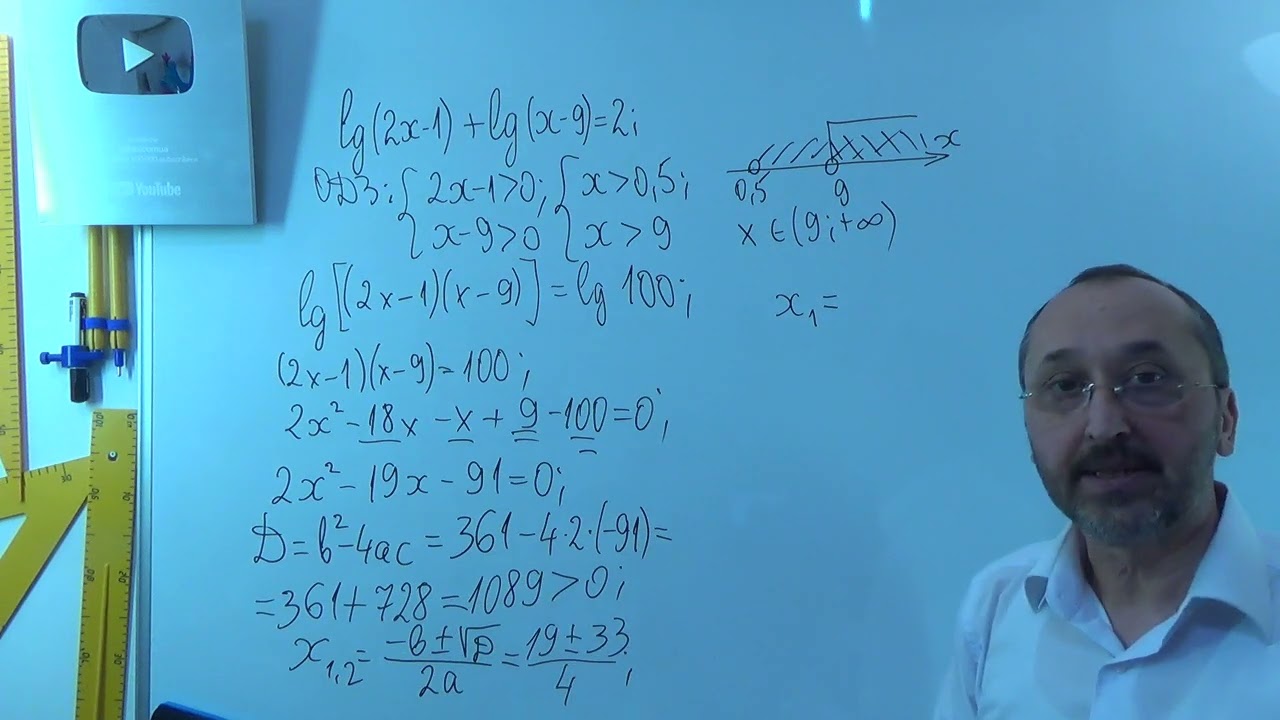 YouTube
lg(2x-1)+lg(x-9)=2;
ОДЗ: { 2x-1>0; { x>0,5;
{ x-9>0 { x>9
lg[(2x-1)(x-9)]=lg 100;
(2x-1)(x-9)=100;
2x²-18x-x+9-100=0;
2x²-19x-91=0;
D=b²-4ac=361-4·2·(-91)=
=361+728=1089>0;
x₁,₂=(-b±√D)/2a=(19±33)/4;
x
0,5 9
x∈(9;+∞)
x₁=